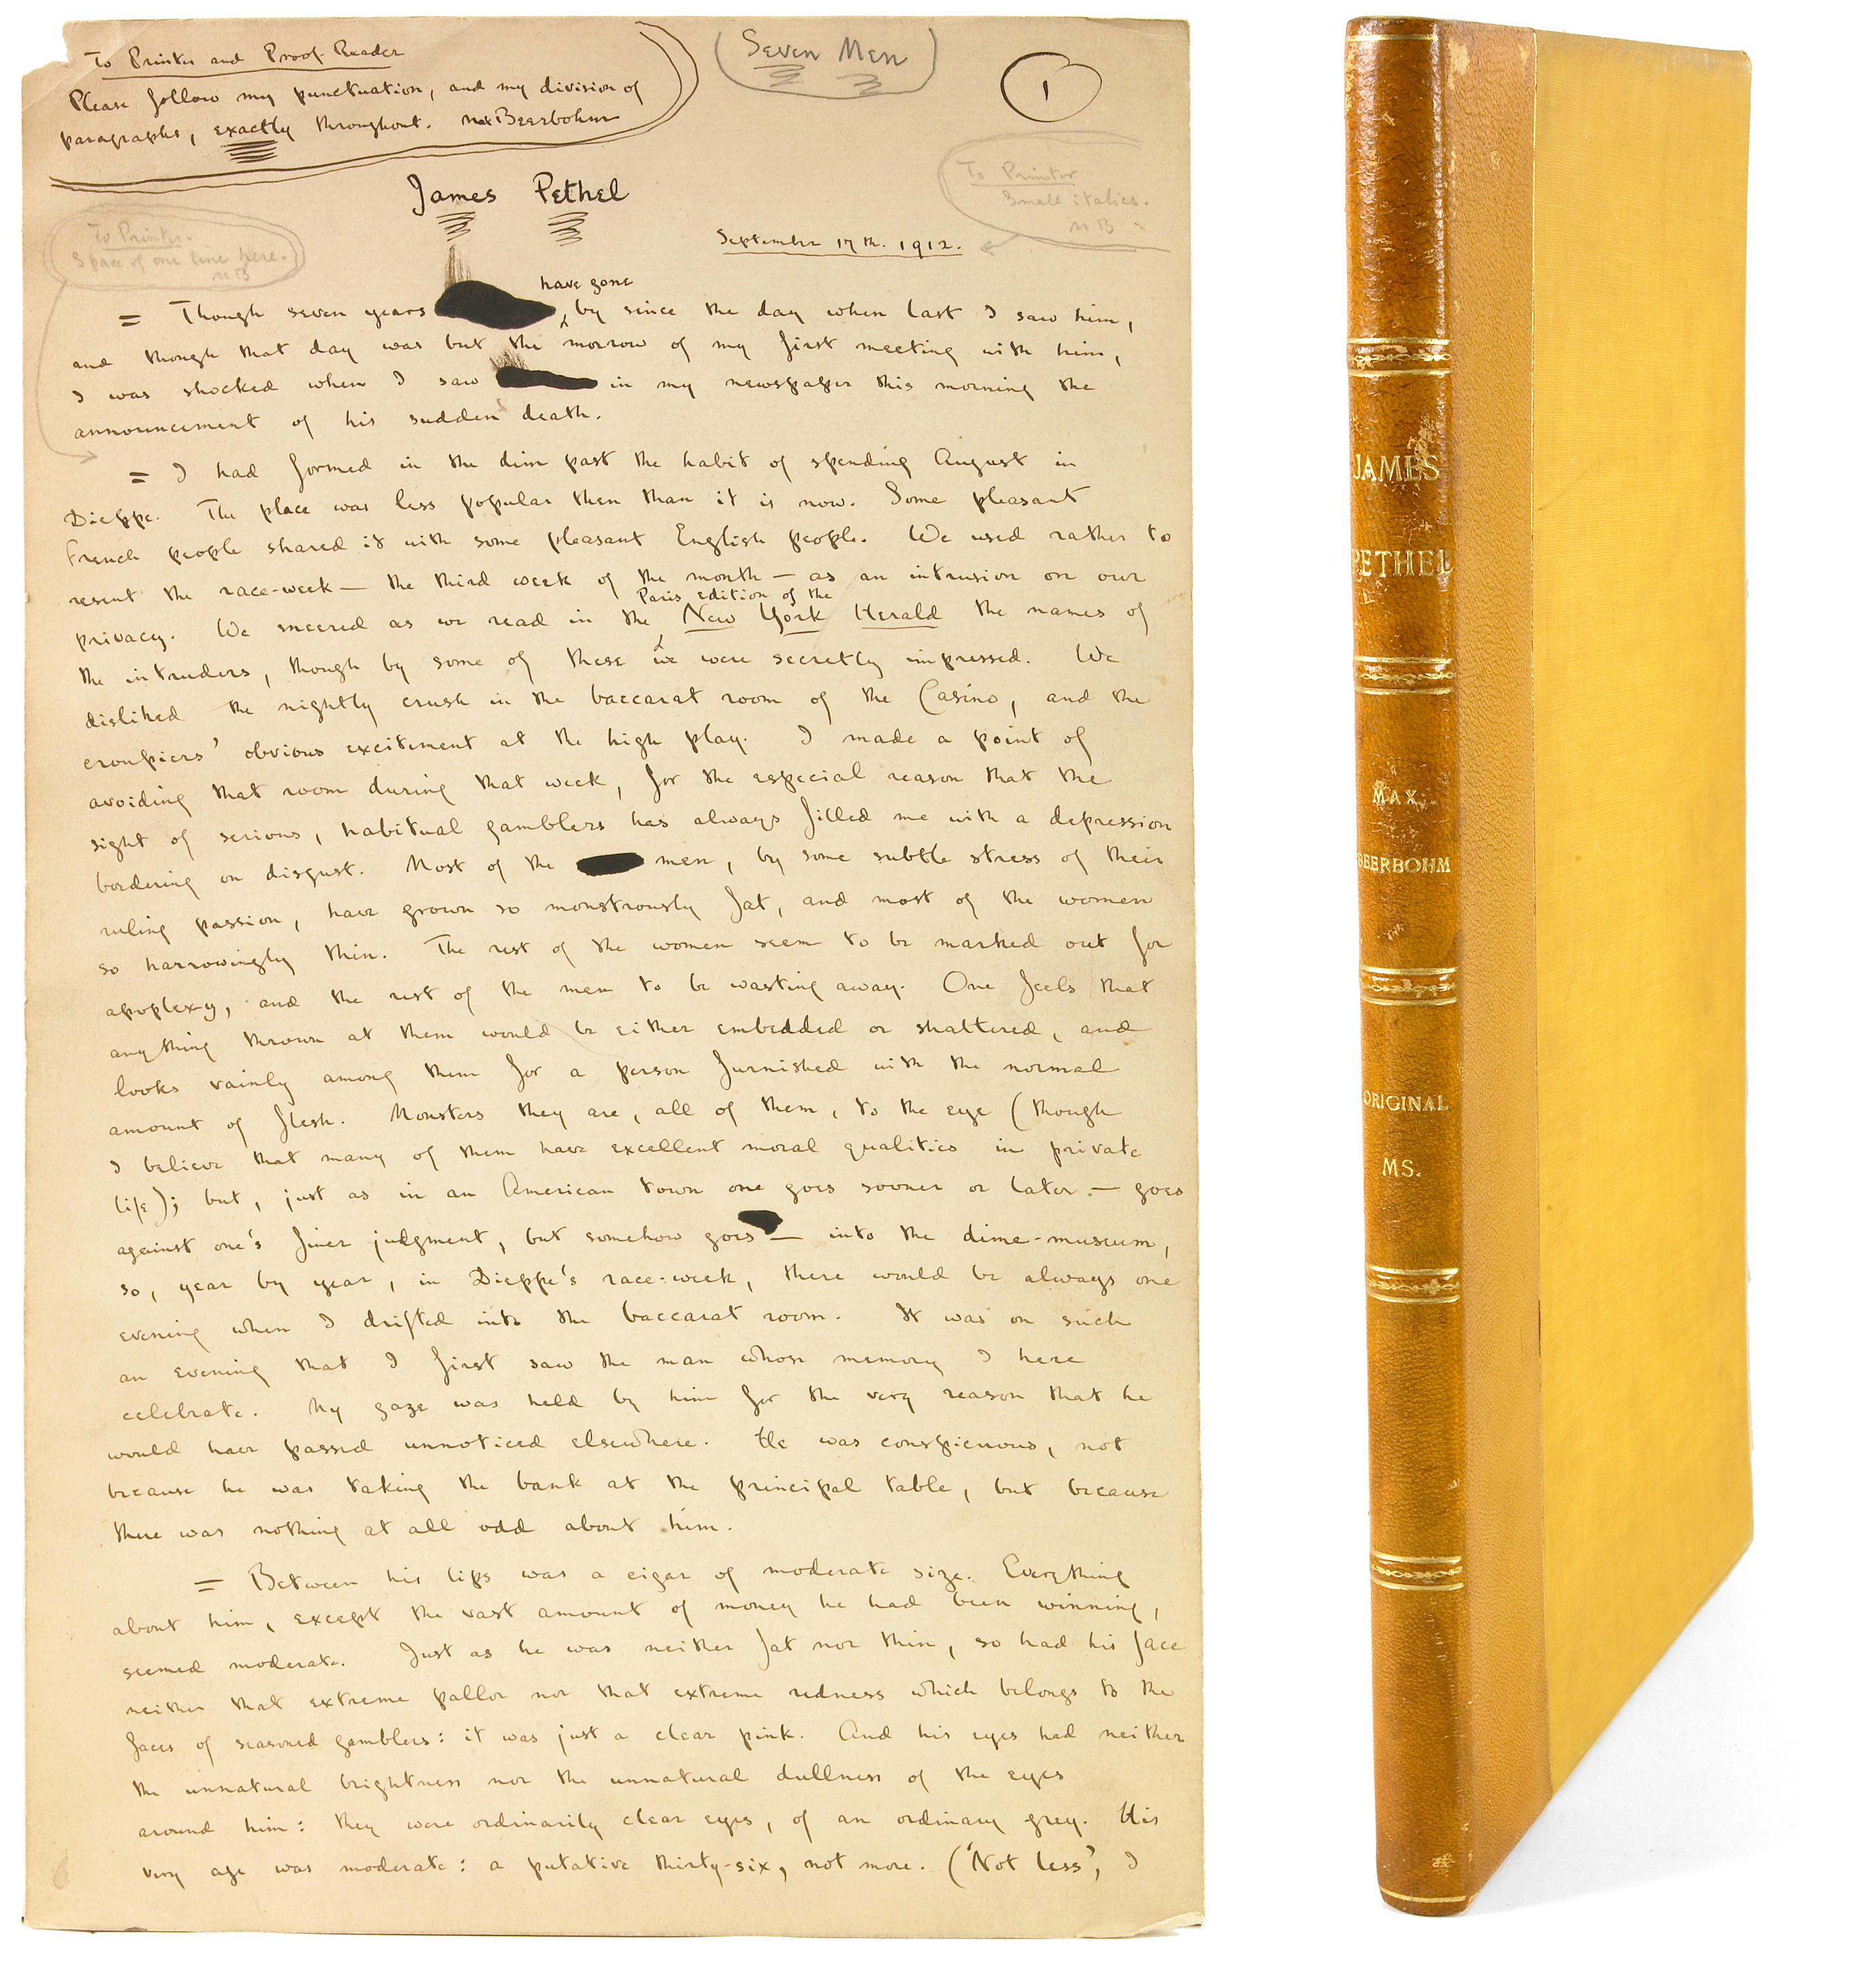 To Printer and Proof-Reader
Please follow my punctuation, and my division of
paragraphs, exactly throughout. Max Beerbohm
(Seven Men)
1
James Pethel
To Printer
Small italics.
MB
September 17th. 1912.
To Printer.
Space of one line here.
MB
= Though seven years have gone by since the day when last I saw him,
and though that day was but the morrow of my first meeting with him,
I was shocked when I saw in my newspaper this morning the
announcement of his sudden death.
= I had formed in the dim past the habit of spending August in
Dieppe. The place was less popular then than it is now. Some pleasant
French people shared it with some pleasant English people. We used rather to
resent the race-week — the third week of the month — as an intrusion on our
privacy. We sneered as we read in the Paris edition of the New York Herald the names of
the intruders, though by some of these we were secretly impressed. We
disliked the nightly crush in the baccarat room of the Casino, and the
croupiers' obvious excitement at the high play. I made a point of
avoiding that room during that week, for the especial reason that the
sight of serious, habitual gamblers has always filled me with a depression
bordering on disgust. Most of the men, by some subtle stress of their
ruling passion, have grown so monstrously fat, and most of the women
so harrowingly thin. The rest of the women seem to be marked out for
apoplexy, and the rest of the men to be wasting away. One feels that
anything thrown at them would be either embedded or shattered, and
looks vainly among them for a person furnished with the normal
amount of flesh. Monsters they are, all of them, to the eye (though
I believe that many of them have excellent moral qualities in private
life); but, just as in an American town one goes sooner or later — goes
against one's finer judgment, but somehow goes — into the dime-museum,
so, year by year, in Dieppe's race-week, there would be always one
evening when I drifted into the baccarat room. It was on such
an evening that I first saw the man whose memory I here
celebrate. My gaze was held by him for the very reason that he
would have passed unnoticed elsewhere. He was conspicuous, not
because he was taking the bank at the principal table, but because
there was nothing at all odd about him.
= Between his lips was a cigar of moderate size. Everything
about him, except the vast amount of money he had been winning,
seemed moderate. Just as he was neither fat nor thin, so had his face
neither that extreme pallor nor that extreme redness which belongs to the
faces of seasoned gamblers: it was just a clear pink. And his eyes had neither
the unnatural brightness nor the unnatural dullness of the eyes
around him: they were ordinarily clear eyes, of an ordinary grey. His
very age was moderate: a putative thirty-six, not more. ('Not less', I
JAMES
PETHEL
MAX
BEERBOHM
ORIGINAL
MS.